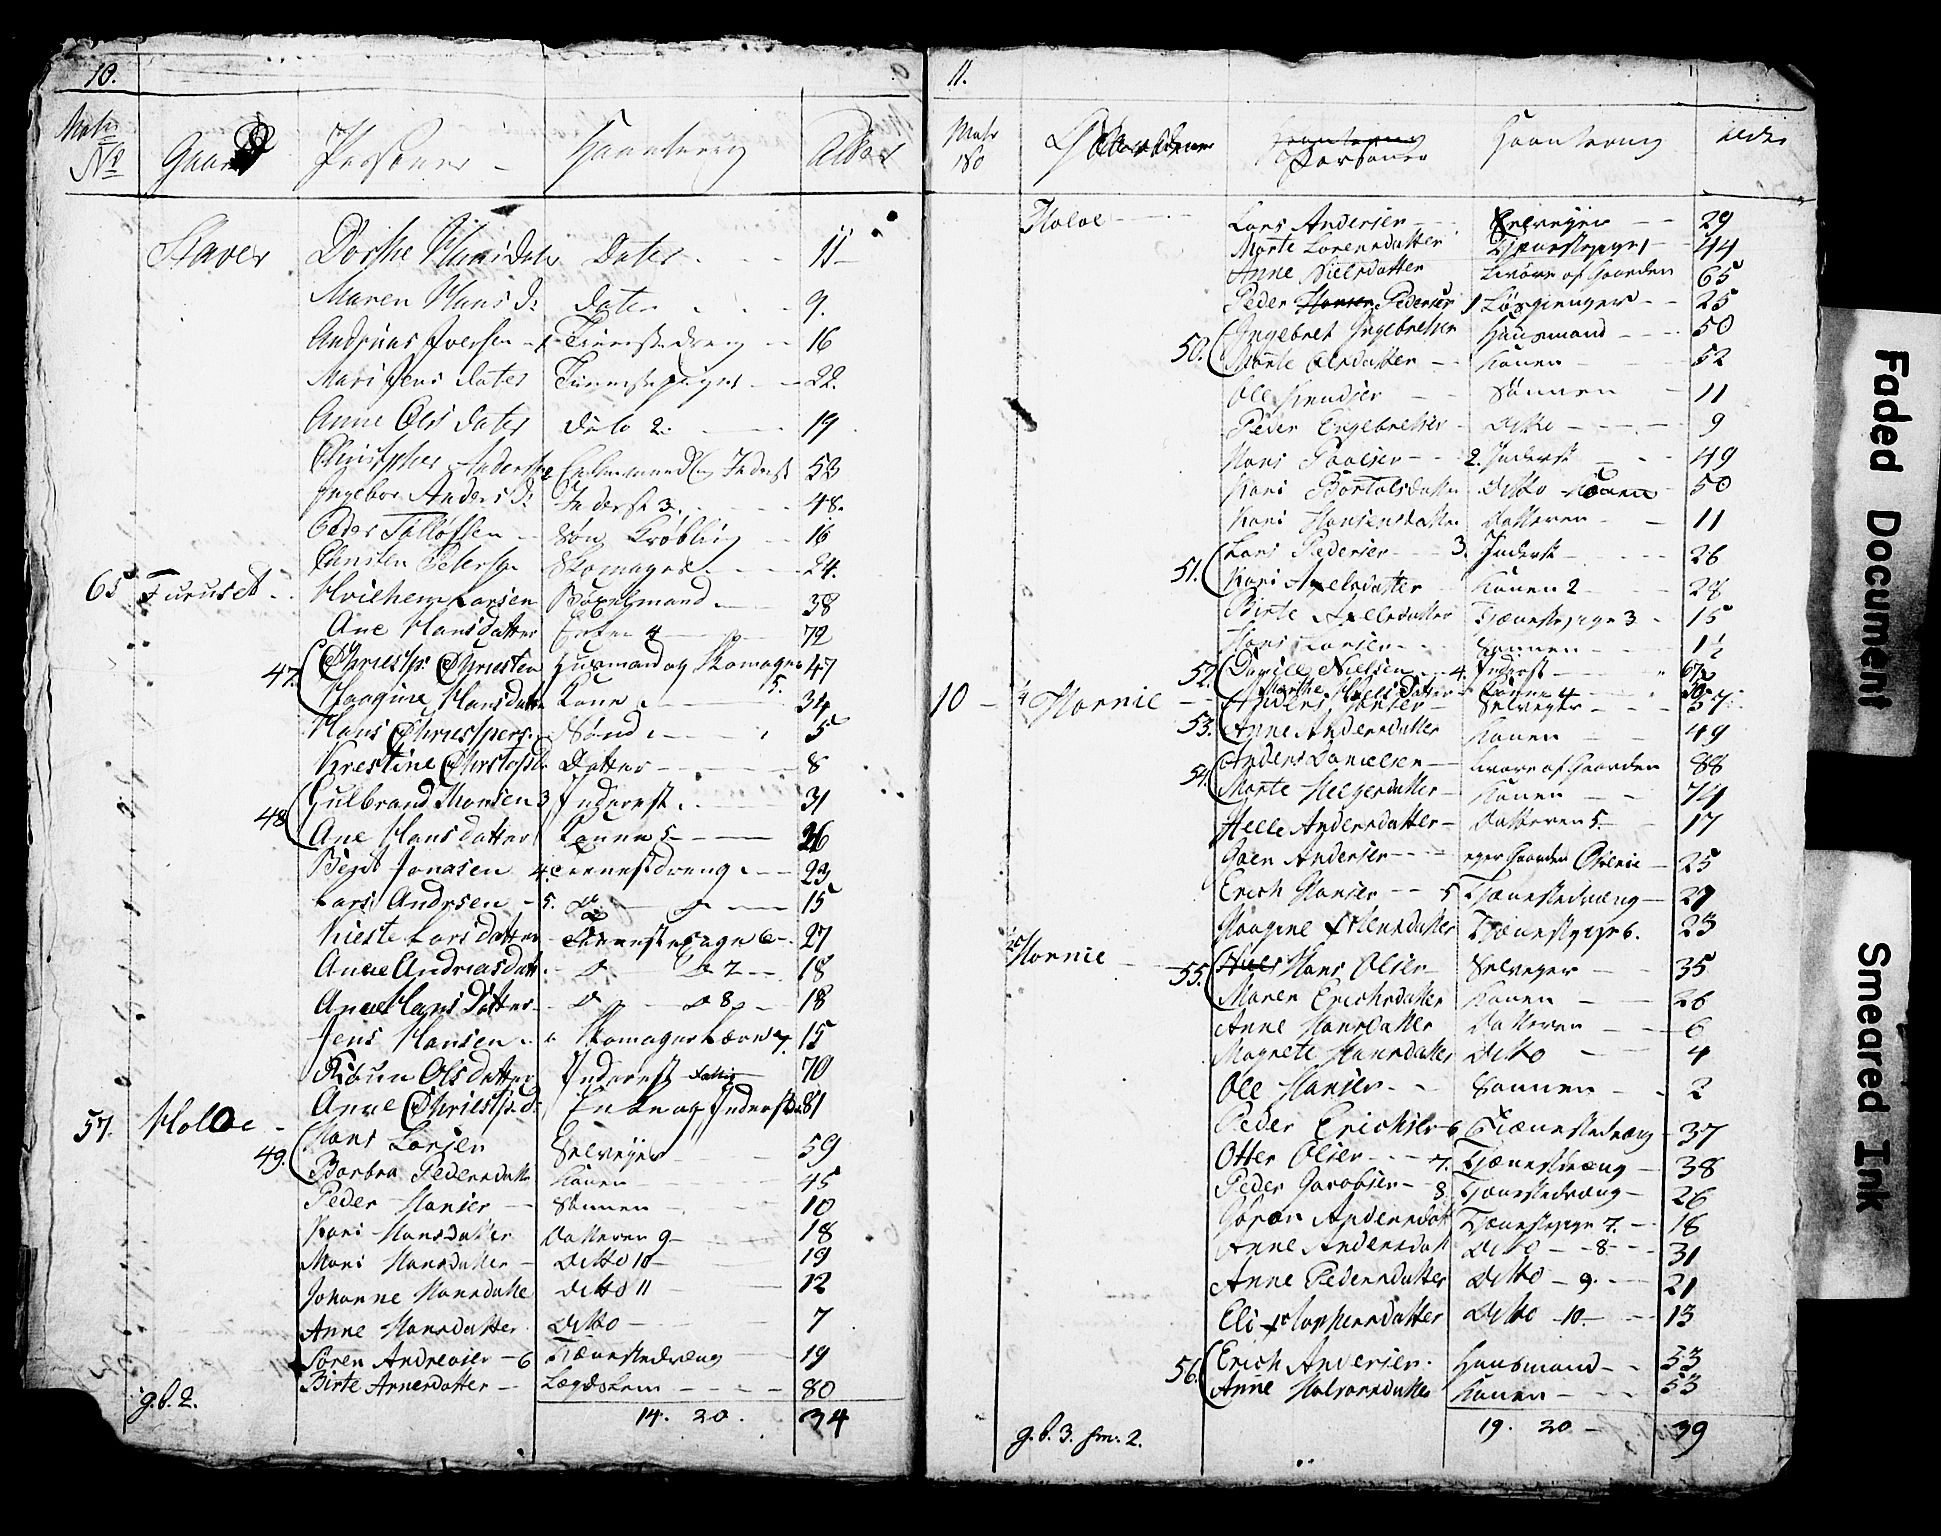 10.
Matr No Gaard Personer Haantering Alder
Staver Dorthe Hansdater Dater 11
Maren Hans D: dater 9.
Andreas Iversen 1 Tieneste dreng 16
Mari Jens dater Tienestepiger 22
Anne Ols dater dito 2. 19
Christopher Andersen Inderst 53
Ingebor Anders D: Inderst 3. 48.
Peder Tolløfsen Søn Krøbling 16
Carsten Petersen Skomager 24.
65 Furuset Willhem Larsen Bøxelmand 38
Ane Hansdatter Enke 4 72
47. Chriestp: Chriesten Huusmand og Skomager 47
Haagine Hansdatter Kone 5. 34
Hans Chriestpers. Sønd 5
Krestine Christopd. Datter 8
48 Gulbrand Monsen 3 Inderest 31
Ane Hansdatter Konne 5 26
Bent Jonasen 4. Tienestdreng 23
Lars Andrsen 5. do do 15
Kieste Larsdatter Tienestepage 6 27
Anne Andriasdatt. do do 7 18
Anne Hansdatter do do 8 18
Jens Hansen Skomager Lærn 7. 15
Olsdatter Inderest Fattig 70
Anne Chriestp. d: Enke og Inderst 81
57. Holoe
49. Hans Larsen Selveyer 59
Barbra Pedersdatte Konen 45
Peder Hansen Sønnen 10
Kari Hansdatter Datteren 9 18
Mari Hansdatter Ditto 10 19
Johanne Hansdatte ditto 11 12
Anne Hansdatter Ditto 7
Søren Andreasen 6 Tjænestedræng 19
Birte Arnesdatter Lægdslem 80
g.b. 2. 14. 20. 34
11.
Matr No Gaardene Personer Haantering alder
Holoe Lars Andersen Selveyer 29
Marte Lorensdatter Tjænestepige 1 44
Anne Nielsdatter Livøre af Gaarden 65
Peder Hansen Pedersen 1 Løsgienger 25
50. Ingebret Ingebretsen Huusmand 50
Marte Olsdatter Konen 52
Ole Knudsen Sønnen 11
Peder Engebretsen Ditto 9
Hans Paalsen 2. Inderst 49
Kari Bortolsdatte Ditto Konen 50
Kari Hansensdatte Datteren 11
51. Lars Pedersen 3. Inderst 26
Kari Axelsdatter Konen 2 28
Birte Axelsdatter Tjænestepige 3 15
Hans Larsen Sønnen 1½
52. Nielsen 4. Inderst 67
Marthe Nielsdatter Konne 4
10 ½ Hornie
53. Anders Hansen Selveyer 57
Anne Andersdatter Konen 49
54. Anders Danielsen Livøre af Gaarden 88
Marte Helgesdatter Konen 74
Helle Andersdatter Datteren 5. 17
Goen Andersen eger Gaarden 25
Erich Hansen 5 Tjænestedræng 29
Haagine Datter Tjænestepige 6. 23
½ Hornie
55. Hans Olsen Selveyer 35
Maren Erichsdatter Konen 26
Anne Hansdatter Datteren 6
Magrete Hansdatter Ditto 4
Ole Hansen Sønnen 2
Peder Erichsen 6 Tiænestedræng 37
Otter Olsen 7. Tjænestdræng 38
Peder Jacobsen 8. Tjænestedræng 26
Søren Andersdatt Tjænestepige 7. 16
Anne Andersdatt Ditto 8 31
Anne Pedersdatter Ditto 9. 21
Eli Datter Ditto 10 13
56. Erich Andersen Huusmand 53
Anne Halvorsdatter Konen 53
g.b. 3. hm. 2. 19. 20 39
Faded Document
Smeared Ink